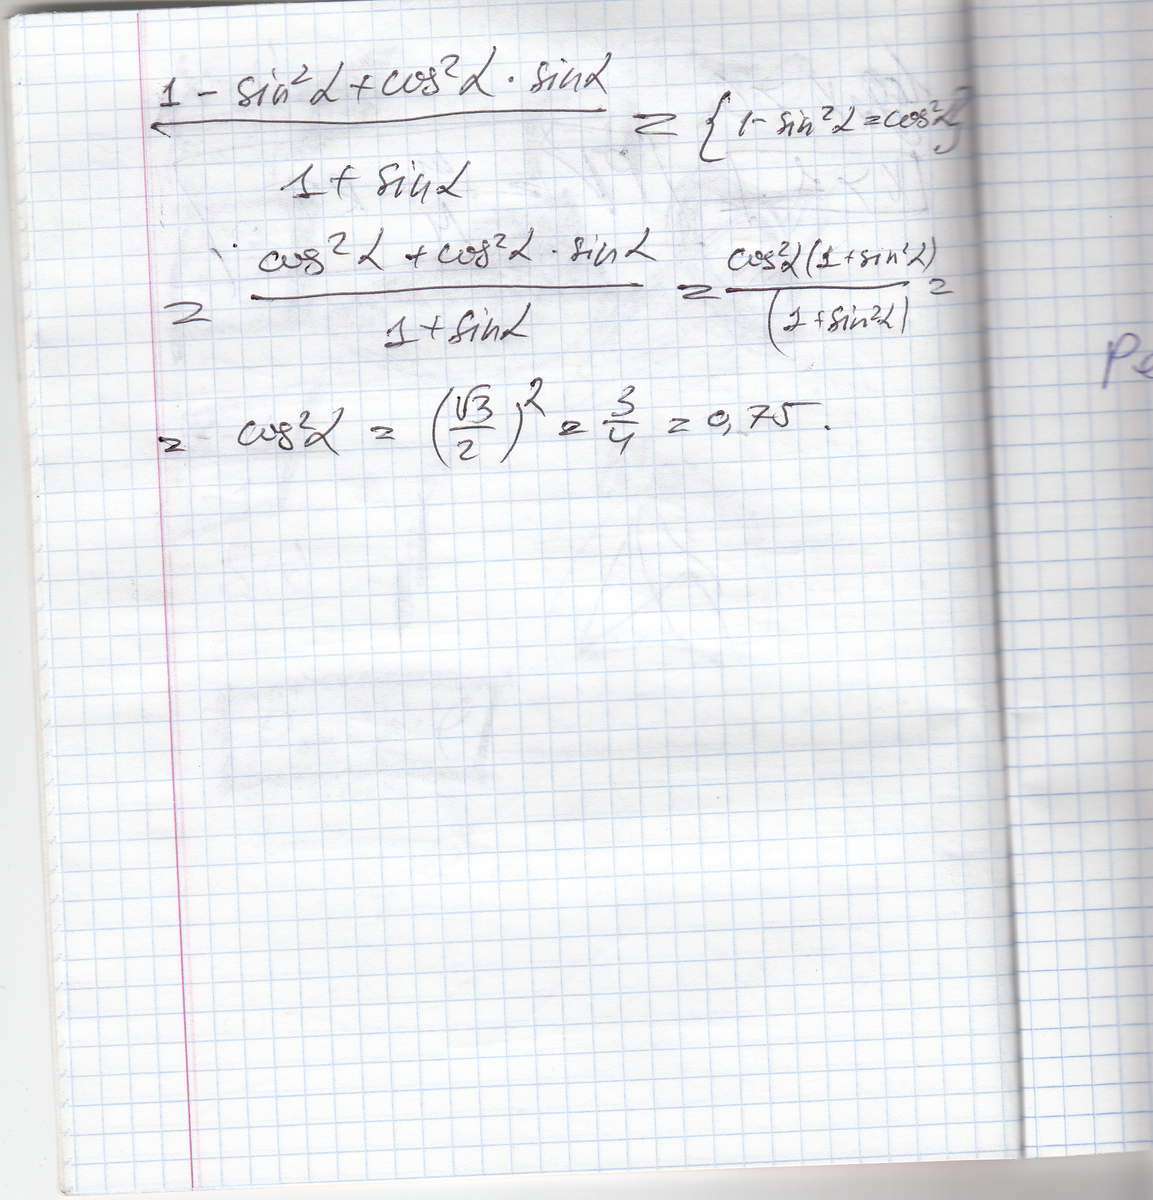 (1 - sin²α + cos²α · sinα) / (1 + sinα) = {1 - sin²α = cos²α}
= (cos²α + cos²α · sinα) / (1 + sinα) = cos²α(1 + sin²α) / (1 + sin²α) =
= cos²α = (√3/2)² = 3/4 = 0,75.
Ре